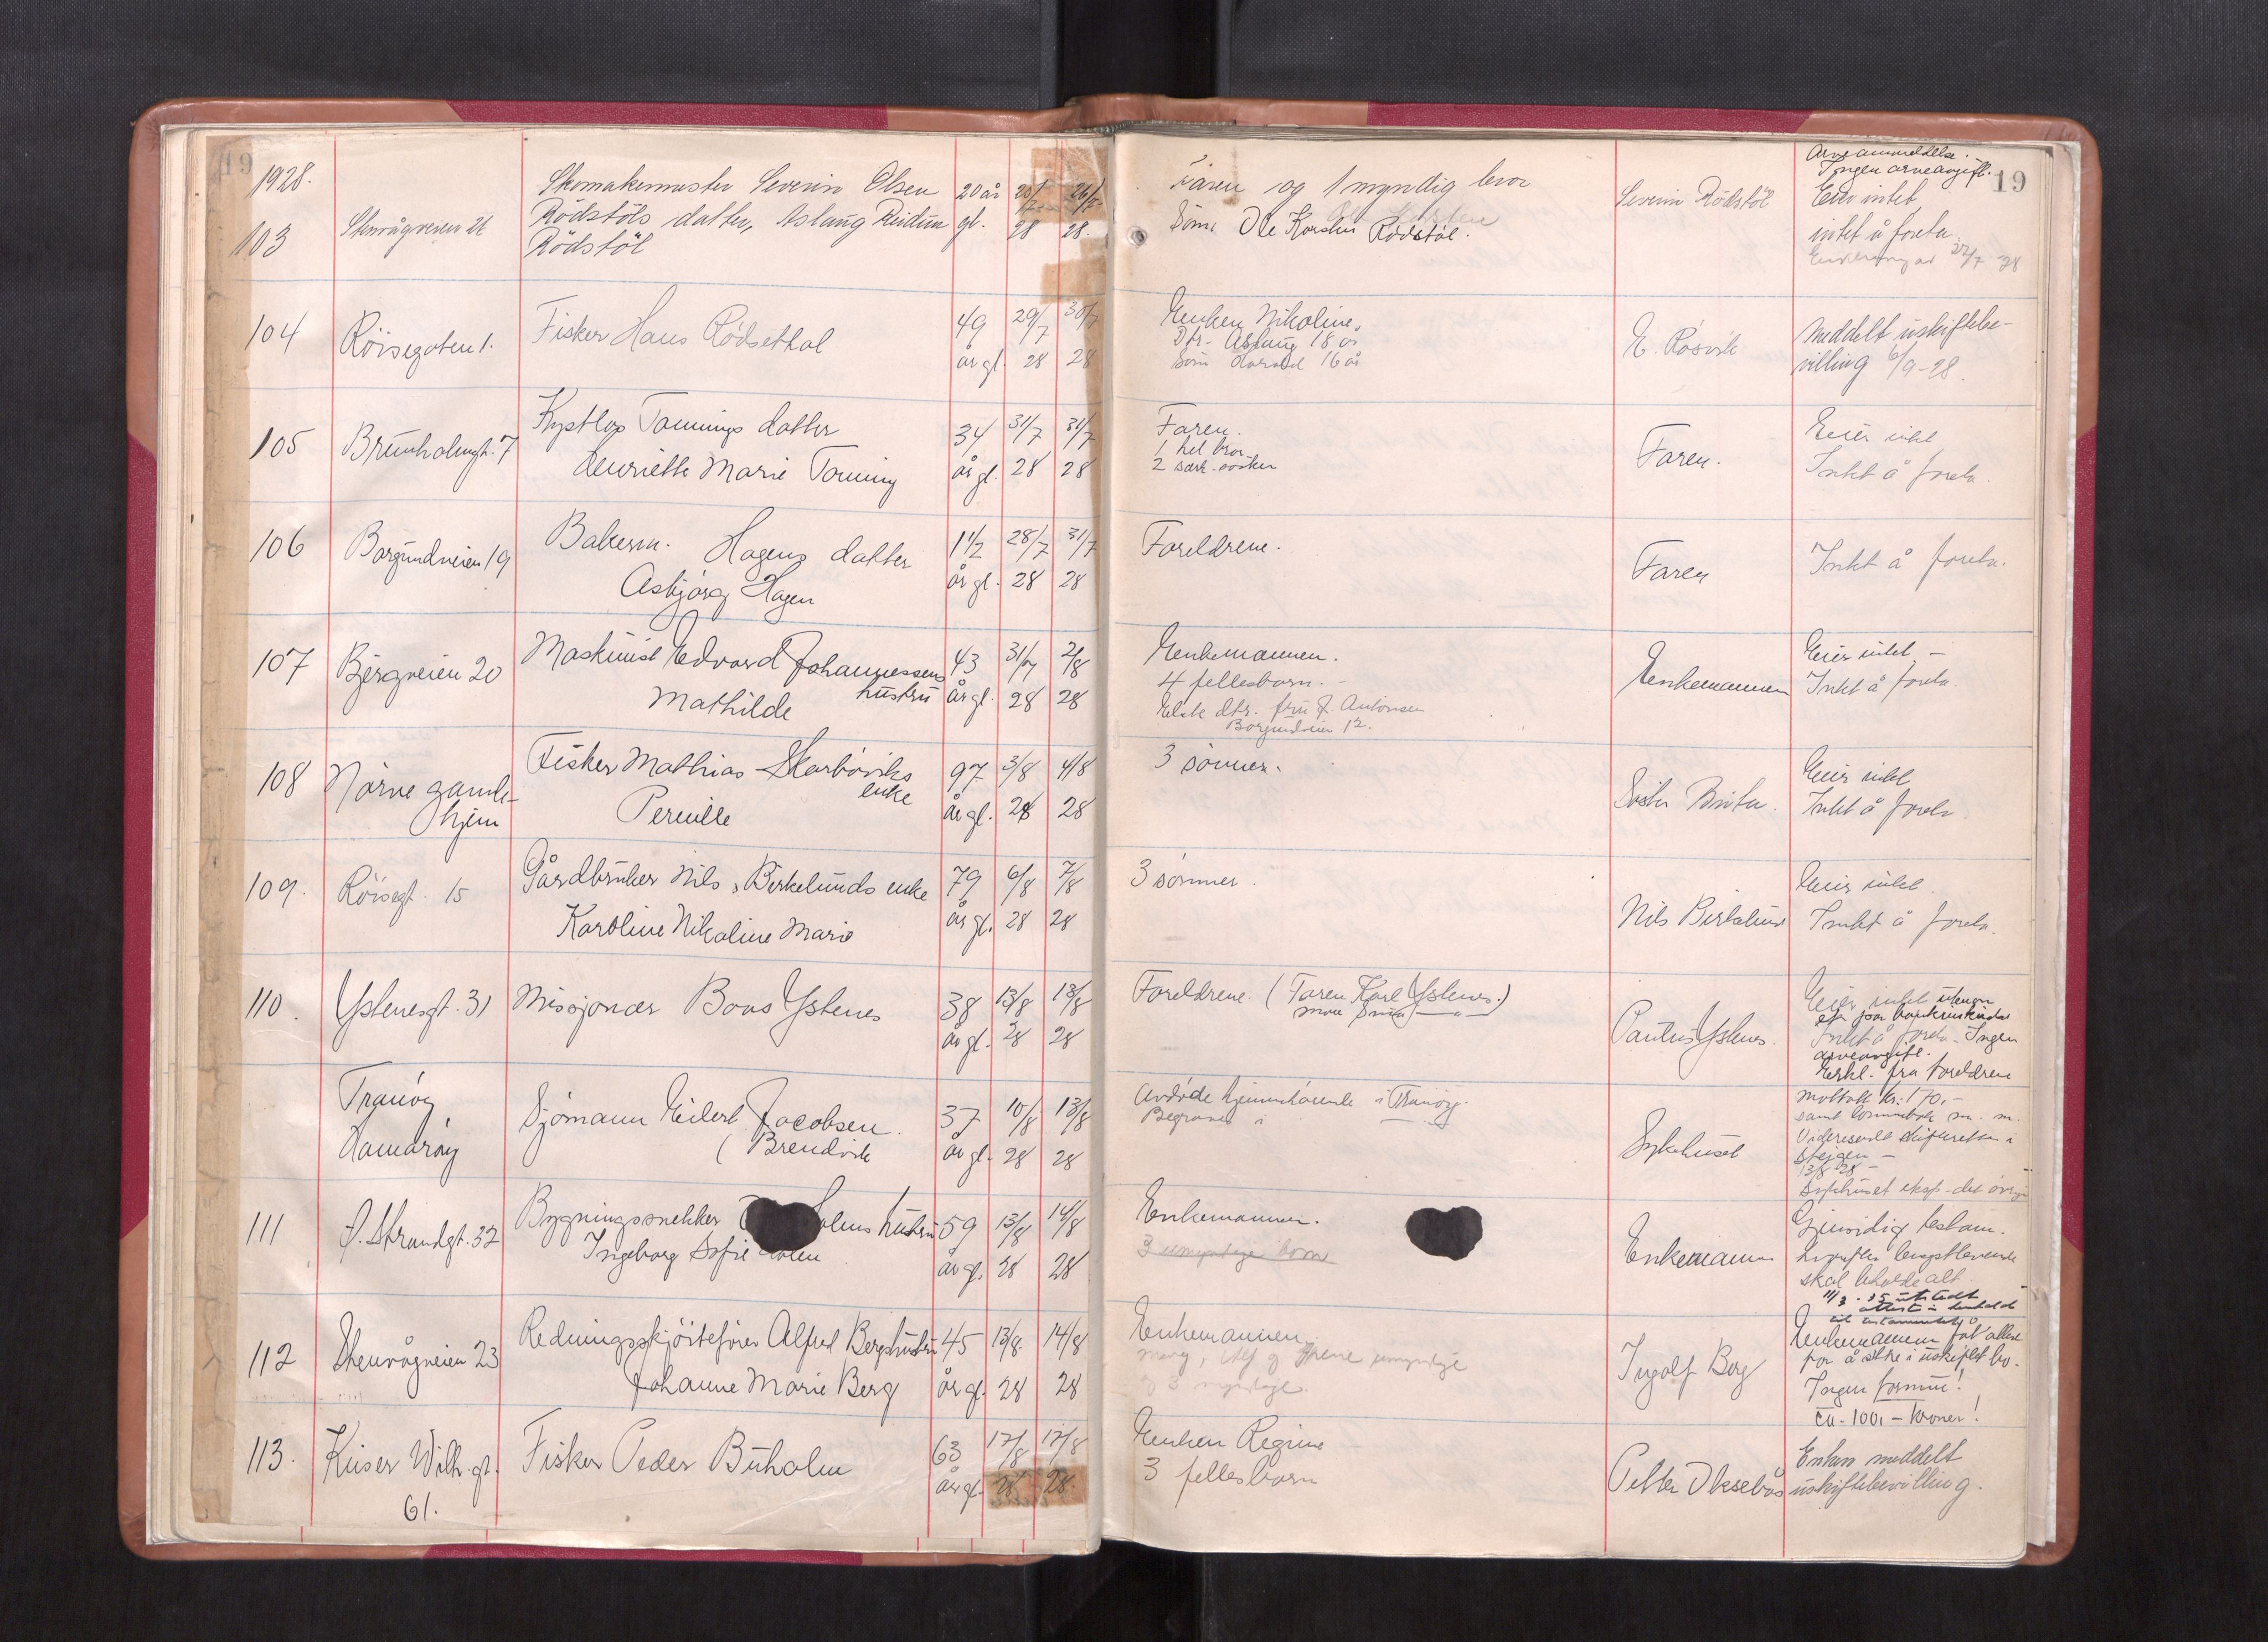 19
1928.
103
Skomakermester Severin Olsen
Rödstöls datter, Aslaug Reidun
Rödstöl
20 år
gl.
28
26/7
28.
Faren og 1 myndig bror
Ole Karsten Rödstöl.
Severin Rödstöl
Arveanmeldelse.
Ingen arveavgift.
19
Eier intet
intet å foreta
27/7 28
104
Röisegaten 1.
Fisker Hans Rødsethal
49
år gl.
29/7
28
30/7
28
Enken Nikoline.
Dtr. Aslaug 18 år
Sönn Harald 16 år
E. Råsvik
Meddelt uskiftebe-
villing 6/9-28.
105
Brunholmgt. 7
Tonnings datter
Henriette Marie Tonning
34
år gl.
31/7
28
31/7
28
Faren.
1 hel bror
2 særsösken
Faren.
Eier intet
Intet å foreta.
106
Borgundveien 19
Bakerm. Hagens datter
Asbjörg Hagen
1 1/2
år gl.
28/7
28
31/7
28
Foreldrene.
Faren
Intet å foreta.
107
Bjergveien 20
Maskinist Edvard Johannessens
hustru
Mathilde
43
år gl.
31/7
28
2/8
28
Enkemannen.
4 fellesbarn.
Eldste dtr. fru J. Antonsen
Borgundveien 12.
Enkemannen
Eier intet -
Intet å foreta.
108
Nörve gamle-
hjem
Fisker Mathias Skarböviks
enke
Pernille
97
år gl.
3/8
28
4/8
28
3 sönner.
Söster Brita.
Eier intet
Intet å foreta.
109.
Röisegt. 15
Gårdbruker Nils Birkelunds enke
Karoline Nikoline Marie
79
år gl.
6/8
28
7/8
28
3 sönner.
Nils Birkelund
Eier intet.
Intet å foreta.
110.
Ystenesgt. 31
Missjonær Boas Ystenes
38
år gl.
13/8
28
13/8
28
Foreldrene. (Faren Karl Ystenes.)
Paulus Ystenes.
Eier intet utenom
et par bankinskudd
Intet å foreta. Ingen
arveavgift.
Erkl. fra foreldrene
Tranöy
Hamaröy
Sjömann Eilert Jacobsen.
(Brendvik
37
år gl.
10/8
28
13/8
28
Avdöde hjemmehörende i Tranöy.
Begraves i
Sykehuset
Mottatt kr. 170,-
samt lommebok m. m.
Videresendt skifteretten i
Steigen -
13/8 28 -
Sykehuset eksp. det övrige
111
Ö. Strandgt. 32
Bygningssnekker
hustru
Ingeborg Sofie Holen
59
år gl.
13/8
28
14/8
28
Enkemannen.
3 umyndige barn
Enkemannen
Gjensidig testam.
hvorefter lengstlevende
skal beholde alt
11/3. 35 utstedt
attest i henhold
til testamentet
112
Stenvågveien 23
Redningsskjöitefören Alfred Bergs hustru
Johanne Marie Berg
45
år gl.
13/8.
28
14/8
28
Enkemannen.
Mary, Alf og Irene umyndige
og 3 myndige.
Ingolf Berg
Enkemannen fåt attest
for å sitte i uskiftet bo.
Ingen formue!
ca. 100,- kroner!
113.
Keiser Wilh. gt.
61.
Fisker Peder Buholm
63
år gl.
17/8
28
17/8
28.
Enken Regine
3 fellesbarn
Petter Oksebås
Enken meddelt
uskiftebevilling.